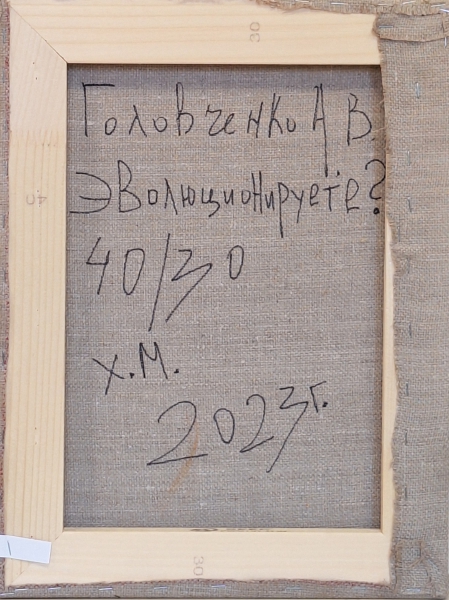 30
Головченко А В.
Эволюционируете?
40
40/30
х.м.
2023г.
30